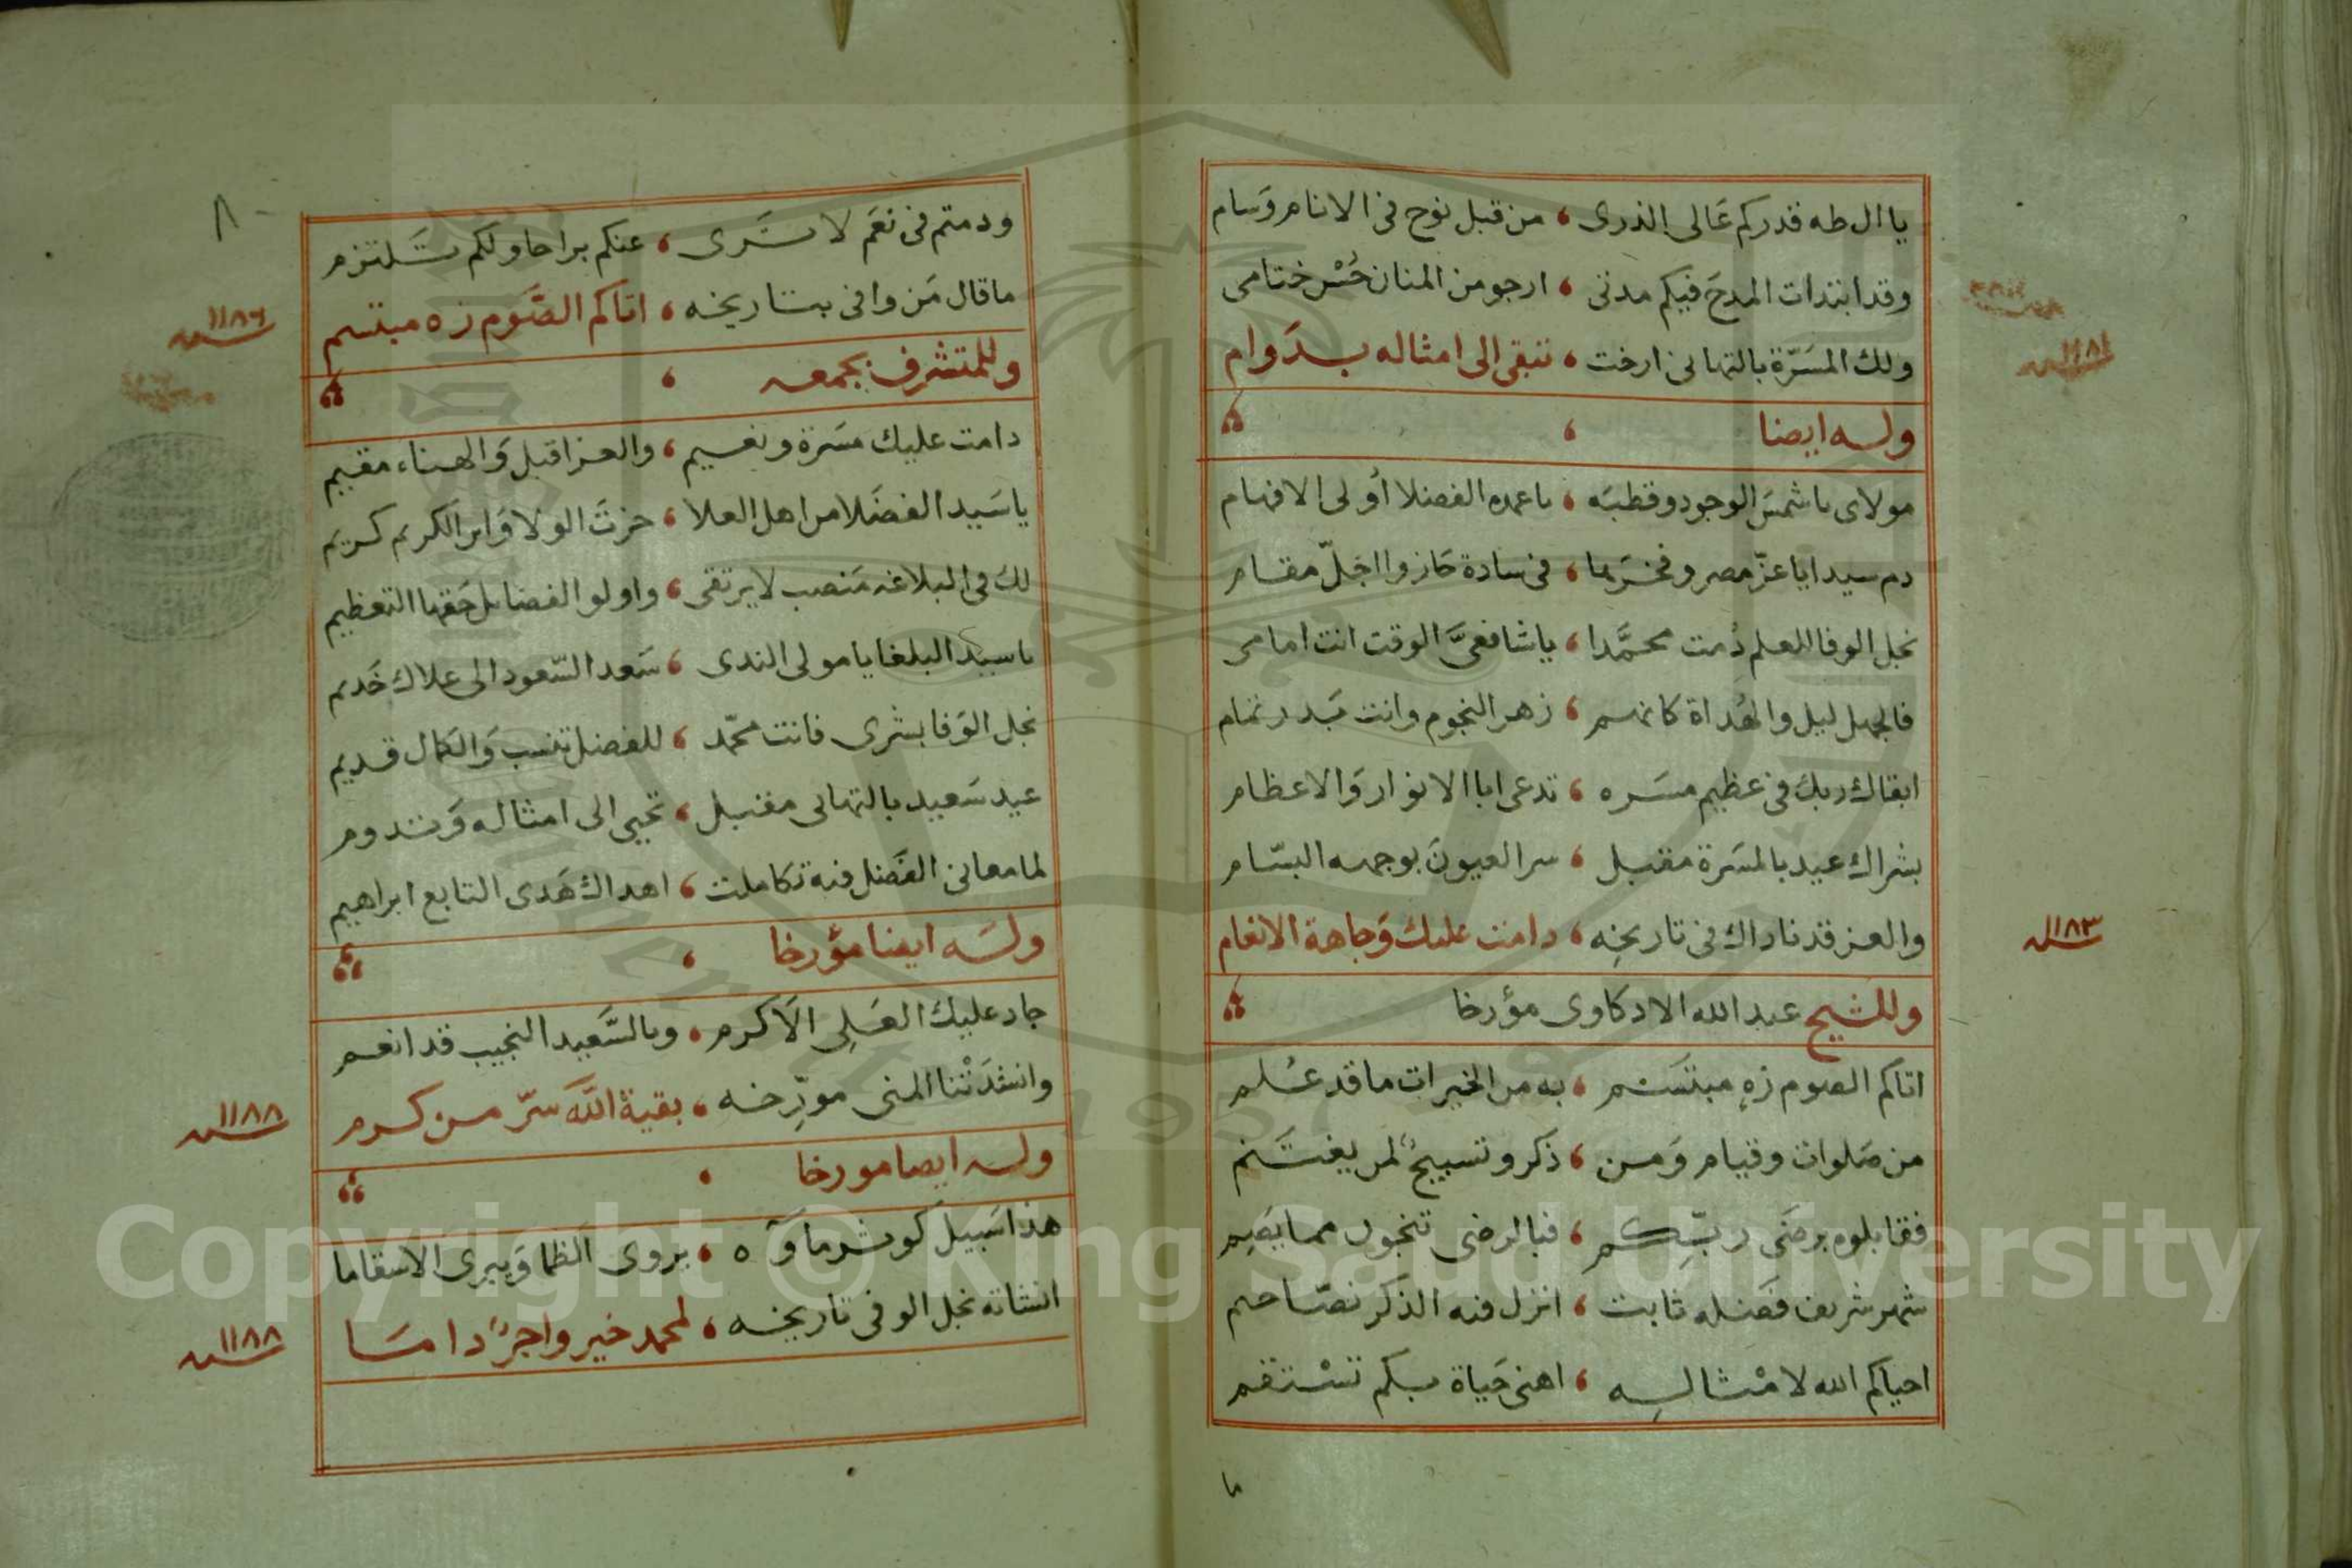 يا ال طه قدركم عَالى الذرى ، من قبل نوح فى الانام وَسام
وقد ابتدات المدحَ فيكم مدتى ، ارجو من المنان حُسْن ختامى
ولك المسَرّة بالتهانى ارخت ، تبقى الى امثاله بدَوام
١١٨١ سنه
وله ايضا
مولاى يا شمسَ الوجود وقطبَه ، يا عمده الفضلا اُولى الافهام
دم سيدا يا عزّ مصر وفخرَها ، فى سادة حَازوا اجَلّ مقام
نجل الوفا للعلم دُمت محمَّدا ، يا شافعىَّ الوقت انت امامى
فالجهل ليل والهُداة كانهم ، زهر النجوم وانت بَدر تمام
ابقاك ربكَ فى عظيم مسَره ، تدعى ابا الانوار وَالاعظام
بشراك عيد بالمسَرة مقبل ، سر العيونَ بوجهه البسّام
والعز قد ناداك فى تاريخِه ، دامت عليك وَجاهة الانعام
١١٨٣ سنه
وللشيخ عبد الله الادكاوى مؤرخا
اتاكم الصوم زهٍ مبتسَم ، به من الخيرات ما قد عُلم
من صَلوات وقيام وَمن ، ذكر وتسبيحٌ لمن يغتَنم
فقابلوه برضَى ربّكم ، فبالرضى تنجون مما يَصِم
شهر شريف فَضله ثابت ، انزل فيه الذكر نصّا حم
احياكم الله لامْثالِه ، اهنى حَياة بكم تسْتقم
ما
٨
ودمتم فى نعَم لا تَرى ، عنكم براحا ولكم تَلتزم
ما قال مَن وافى بتاريخه ، اتاكم الصَّوم زه مبتسم
١١٨٦ سنه
وللمتشرف بجمعه
دامت عليك مسَرة ونعيم ، والعز اقبل وَالهناء مقيم
يا سَيد الفضَلا من اهل العلا ، حزتَ الولا وَابن الكريم كريم
لكَ فى البلاغه مَنصب لا يرتقى ، واولو الفضايل حَقها التعظيم
يا سيد البلغا يا مولى الندى ، سَعد السّعود الى علاك خَديم
نجل الوَفا بشرى فانت محمّد ، للفضل تنسب وَالكمال قديم
عيد سَعيد بالتهانى مقبل ، تحيى الى امثاله وَتدوم
لما معانى الفَضل فيه تكاملت ، اهداك هَدى التابع ابراهيم
ولَه ايضا مؤرخا
جاد عليكَ العَلِى الاَكرم ، وبالسَّعيد النجيب قد انعم
وانشدَتْنا المنى مورّخه ، بقية اللَّه سَرّ من كرم
١١٨٨ سنه
وله ايضا مورخا
هذا سَبيل كوثر ماوَه ، يروى الظما وَيبرى الاسقاما
انشاته نجل الوفى تاريخه ، لمحمد خير واجرٌ دامَا
١١٨٨ سنه
Copyright © King Saud University